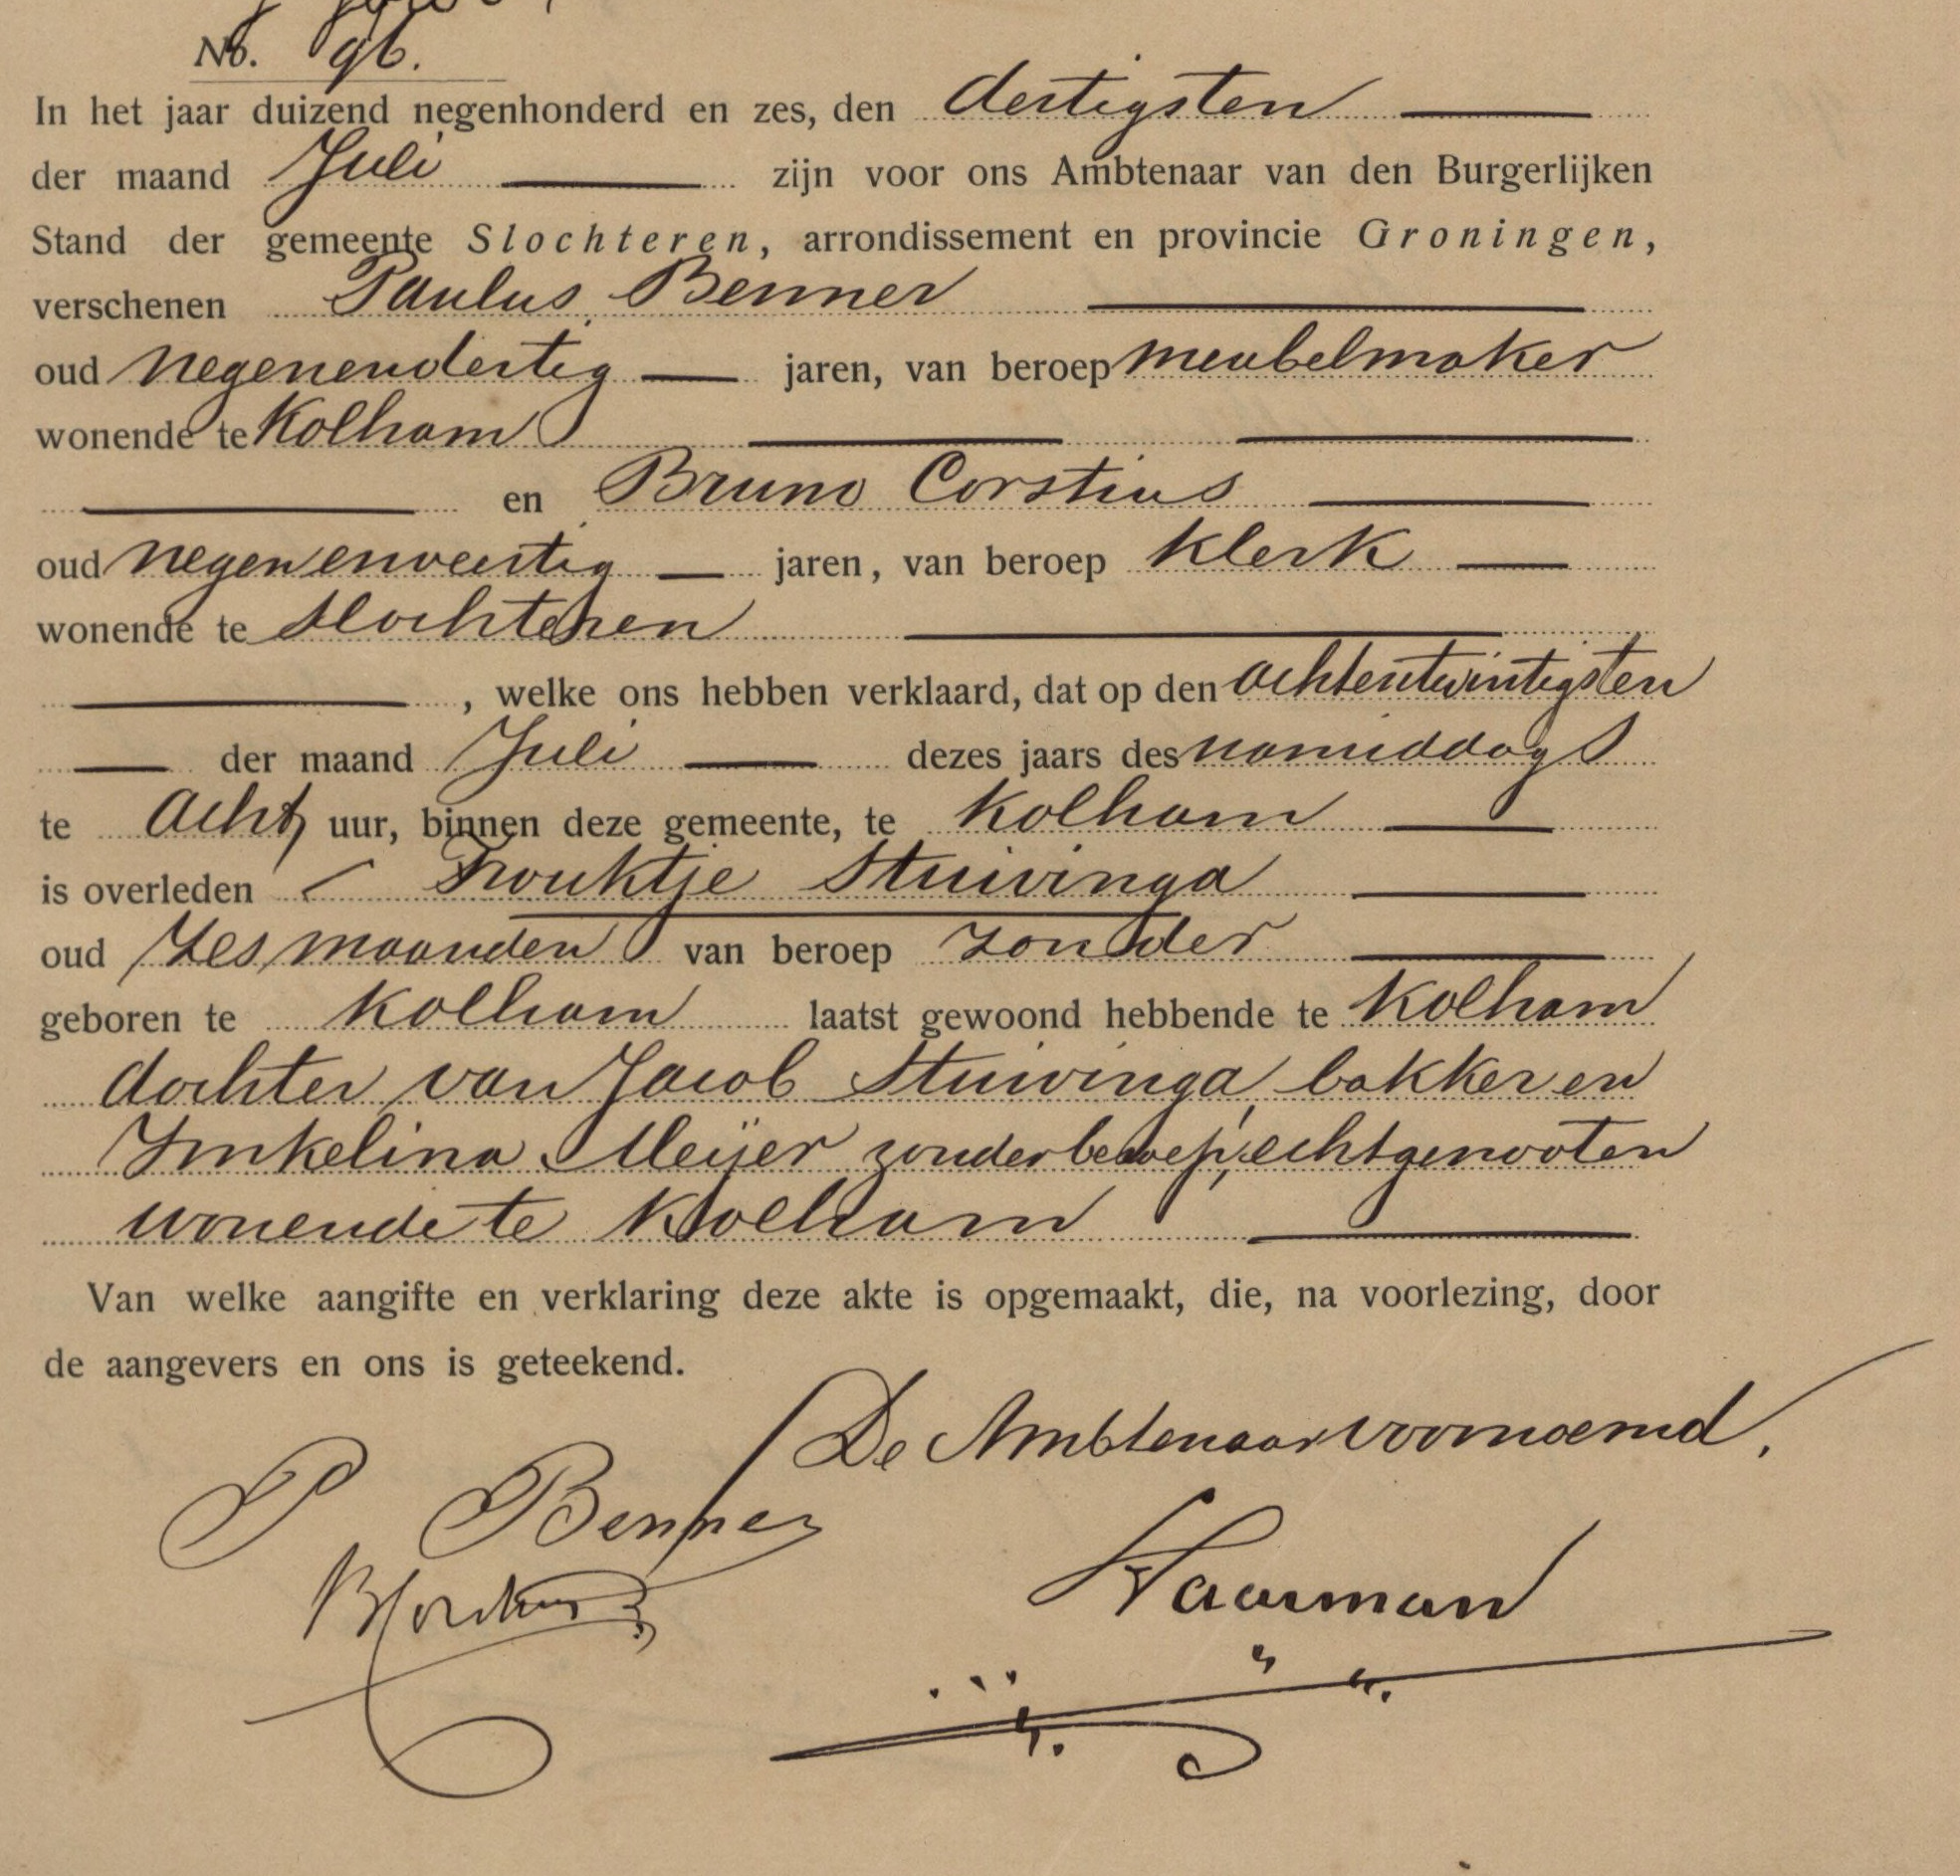 No. 96.
In het jaar duizend negenhonderd en zes, den dertigsten
der maand Juli zijn voor ons Ambtenaar van den Burgerlijken
Stand der gemeente Slochteren, arrondissement en provincie Groningen,
verschenen Paulus Benner
oud negenendertig jaren, van beroep meubelmaker
wonende te Kolham
en Bruno Corstius
oud negenenveertig jaren, van beroep klerk
wonende te Slochteren
, welke ons hebben verklaard, dat op den achtentwintigsten
der maand Juli dezes jaars des namiddags
te acht uur, binnen deze gemeente, te Kolham
is overleden Trouktje Stuivinga
oud zes maanden van beroep zonder
geboren te Kolham laatst gewoond hebbende te Kolham
dochter van Jacob Stuivinga, bakker en
Imkelina Meijer zonder beroep, echtgenooten
wonende te Kolham
Van welke aangifte en verklaring deze akte is opgemaakt, die, na voorlezing, door
de aangevers en ons is geteekend.
De Ambtenaar voornoemd,
P Benner
BCorstius
Haarman